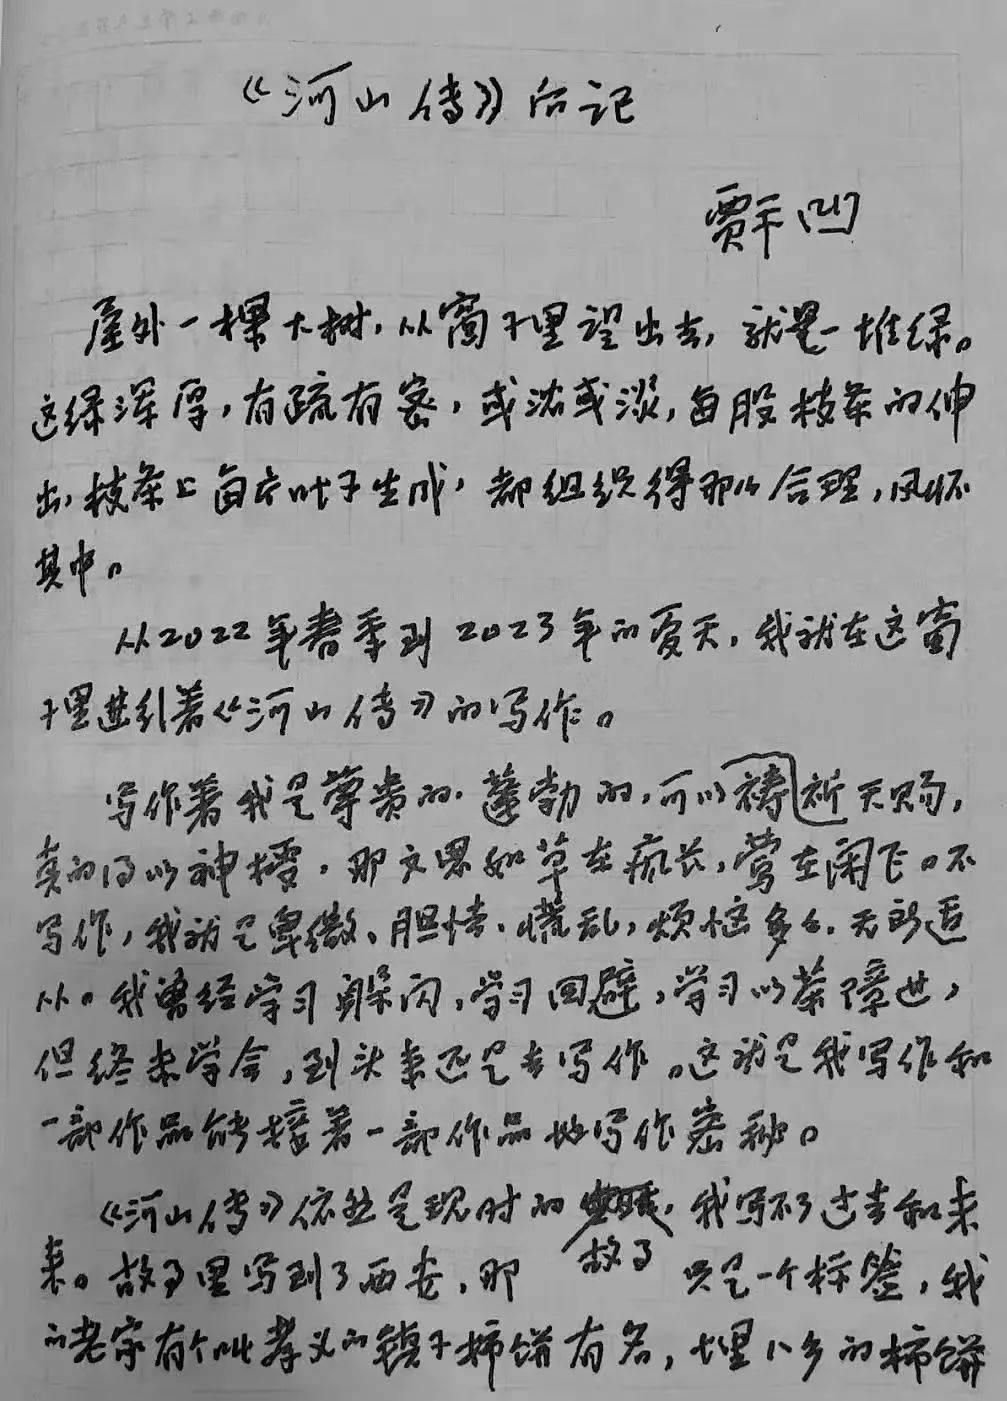 《河山传》后记
贾平凹
屋外一棵大树,从窗子里望出去,就是一堆绿。
这绿浑厚,有疏有密,或浓或淡,每股枝条的伸
出,枝条上每片叶子生成,都组织得那么合理,风怀
其中。
从2022年春季到2023年的夏天,我就在这窗
子里进行着《河山传》的写作。
写作着我是尊贵的、蓬勃的,可以祷祈天赐,
真的得以神授,那文思如草在疯长,莺在闲飞。不
写作,我就是卑微、胆怯、慌乱,烦恼多多,无所适
从。我曾经学习躲闪,学习回避,学习以茶障世,
但终未学会,到头来还是去写作。这就是我写作和
一部作品能接着一部作品地写作密秘。
《河山传》依然是现时的 故事,我写不了过去和未
来。故事里写到了西安,那 只是一个标签,我
的老家有个叫孝义的镇子柿饼有名,十里八乡的柿饼